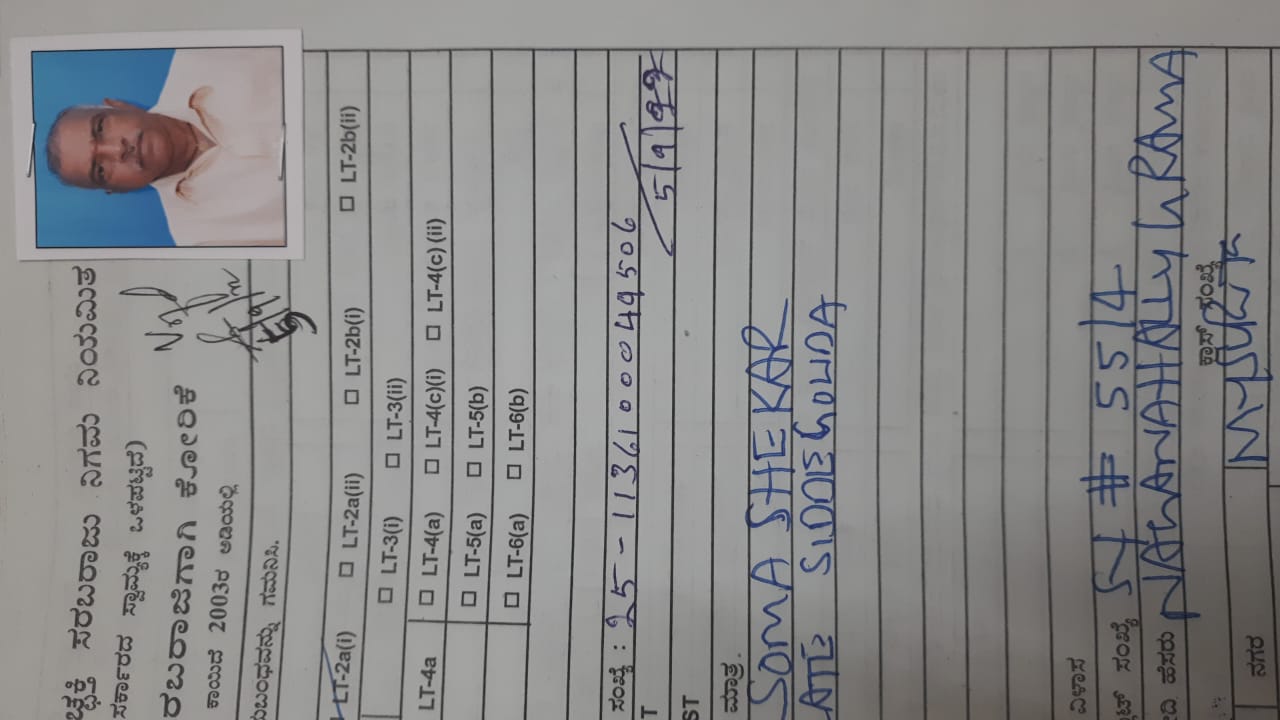 ಚ್ಛಕ್ತಿ ಸರಬರಾಜು ನಿಗಮ ನಿಯಮಿತ
ಸರ್ಕಾರದ ಸ್ವಾಮ್ಯಕ್ಕೆ ಒಳಪಟ್ಟಿದೆ)
ರಬರಾಜಿಗಾಗಿ ಕೋರಿಕೆ
ಕಾಯಿದೆ 2003ರ ಅಡಿಯಲ್ಲಿ
ುಬಂಧವನ್ನು ಗಮನಿಸಿ.
LT-2a(i) □ LT-2a(ii) □ LT-2b(i) □ LT-2b(ii)
□ LT-3(i) □ LT-3(ii)
LT-4a □ LT-4(a) □ LT-4(c)(i) □ LT-4(c) (ii)
□ LT-5(a) □ LT-5(b)
□ LT-6(a) □ LT-6(b)
ಸಂಖ್ಯೆ : 25-11361000449506
T 5/9/22
ST
ಮಾತ್ರ.
SOMA SHEKAR
ATE SIDDEGOWDA
ವಿಳಾಸ
ಟ್ ಸಂಖ್ಯೆ SY # 55/4
ಹೆಸರು NAGANAHALLY GRAMA
ಕ್ರಾಸ್ ಸಂಖ್ಯೆ
ನಗರ